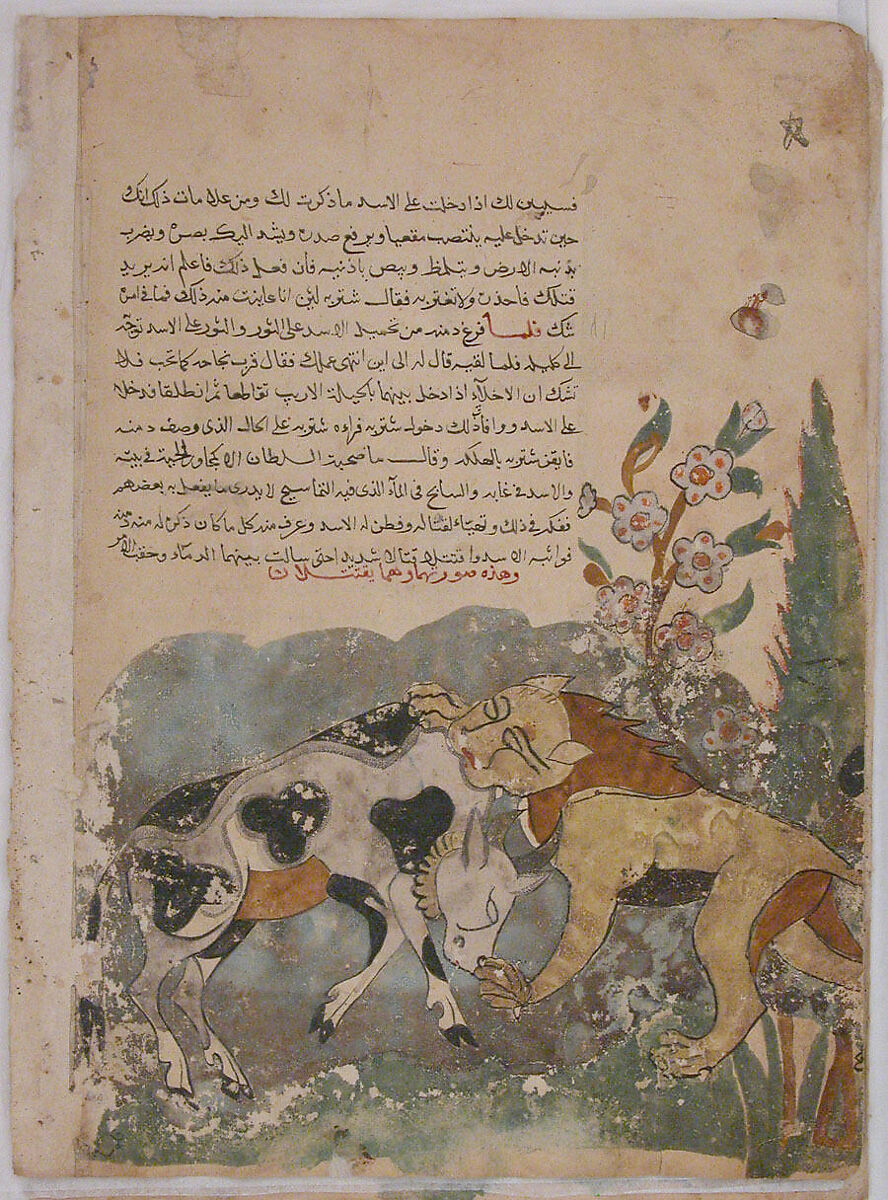 فسيبين لك اذا دخلت على الاسد ما ذكرت لك ومن علامات ذلك انك
حين تدخل عليه ينتصب مقعيا ويرفع صدره ويشد اليك بصره ويضرب
بذنبه الارض ويتلمظ ويبص باذنيه فأن فعل ذلك فاعلم انه يريد
قتلك فاحذره ولا تغتر به فقال شتربه لئن انا عاينت منه ذلك فما في امره
شك فلما فرغ دمنه من تحميل الاسد على الثور والثور على الاسد توجه
الى كليله فلما لقيه قال له الى اين انتهى عملك فقال قرب نجاحه كما تحب فلا
تشك ان الاخلآء اذا دخل بينهما باحيلة الاريب تقاطعا ثم انطلقا فدخلا
على الاسد ووافا ذلك دخول شتربه فراءه شتربه على الحال الذي وصف دمنه
فايقن شتربه بالهلكه وقال ما صحبة السلطان الا كمجاور الحية في بيته
والاسد في غابه والسابح في المآء الذي فيه التماسيح لا يدري ما يفعل به بعضهم
ففكر في ذلك وتهيّاء لقتاله وفطن له الاسد وعرف منه كل ما كان ذكره له منه دمنه
فواثبه الاسد واقتتلا قتالا شديدا حتى سالت بينهما الدمآء وحقب الامر
وهذه صورتهما وهما يقتتلان